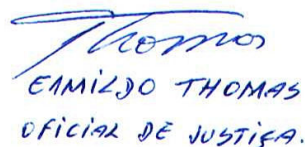 Thomas
ERMILDO THOMAS
OFICIAL DE JUSTIÇA.